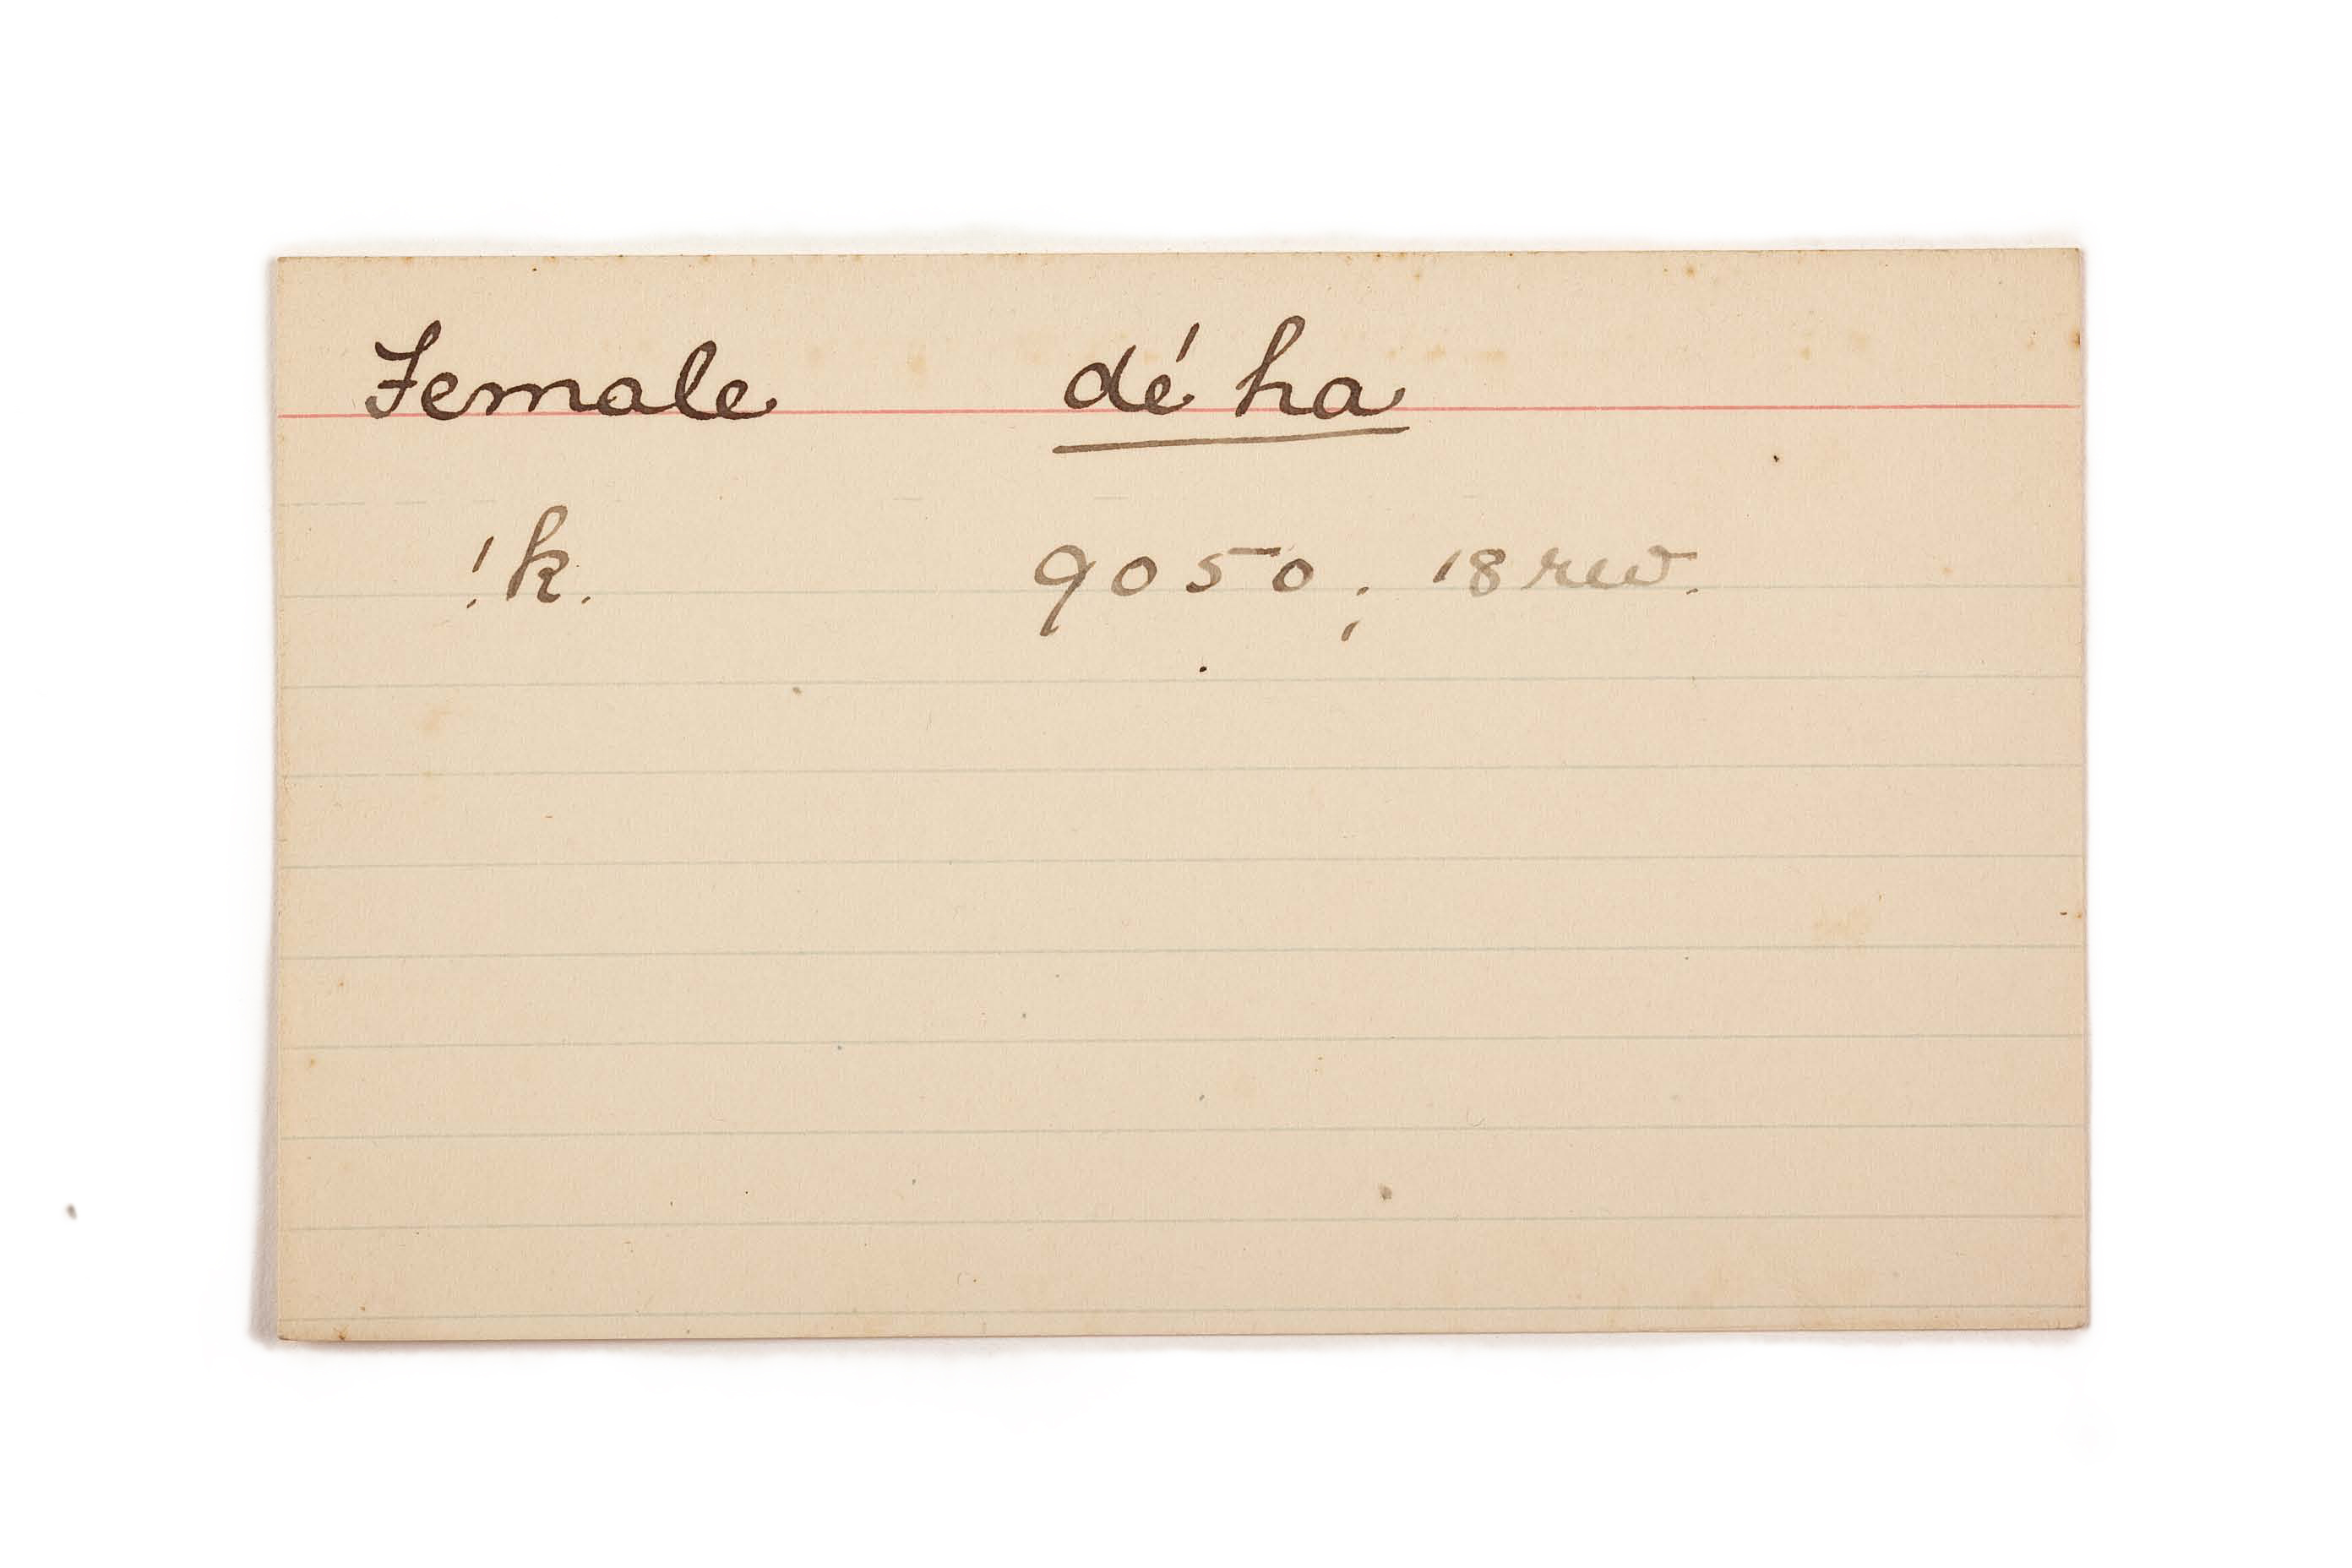 Female dé ha
!k. 9050; 18 rev.